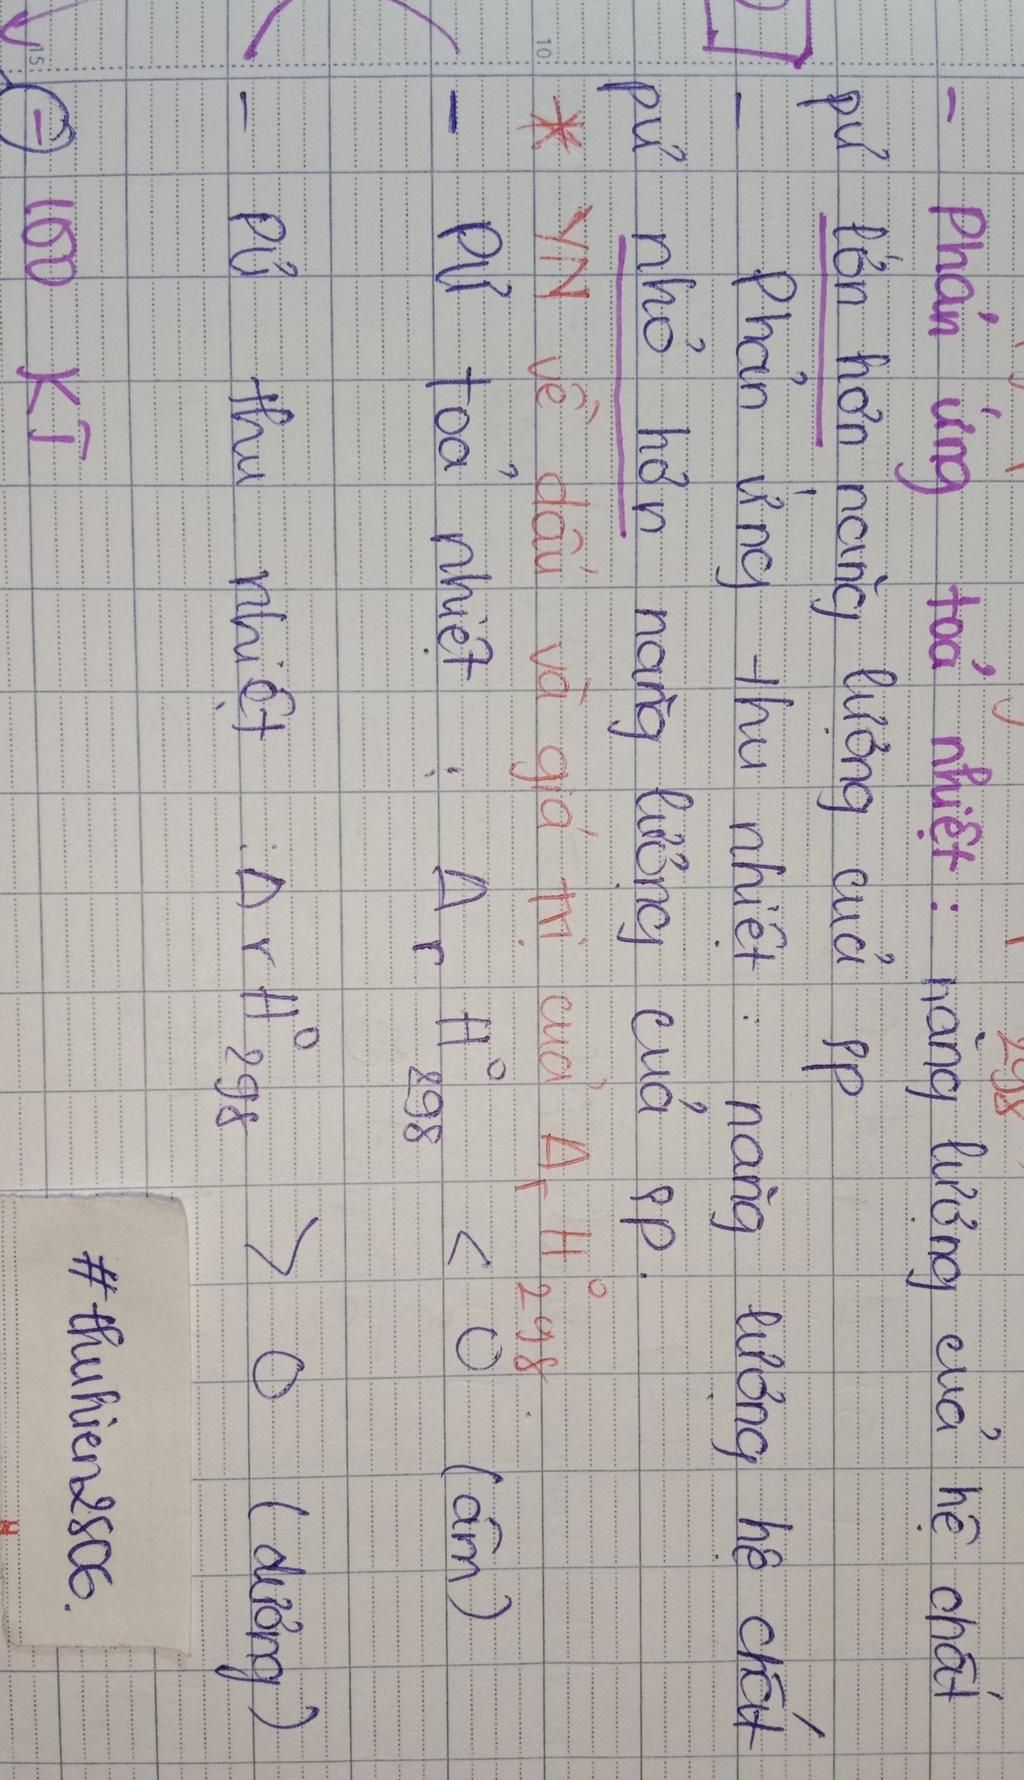 298
- Phản ứng toả nhiệt : năng lượng của hệ chất
pứ lớn hơn năng lượng của sp
- Phản ứng thu nhiệt : năng lượng hệ chất
pứ nhỏ hơn năng lượng của sp.
* YN về dấu và giá trị của ΔrH°298.
- Pứ toả nhiệt : ΔrH°298 < 0 (âm)
- Pứ thu nhiệt : ΔrH°298 > 0 (dương)
- 100 KJ
#thuhien2806.
10
15